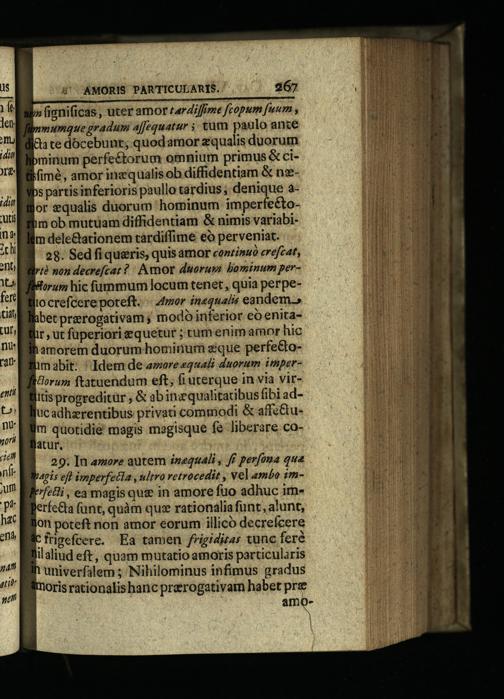 AMORIS PARTICULARIS. 267
significas, uter amor tardissime scopum suum,
summumque gradum assequatur; tum paulo ante
dicta te docebunt, quod amor æqualis duorum
hominum perfectorum omnium primus & ci-
tissimè, amor inæqualis ob diffidentiam & næ-
vos partis inferioris paullo tardius, denique a-
mor æqualis duorum hominum imperfecto-
rum ob mutuam diffidentiam & nimis variabi-
lem delectationem tardissime eò perveniat.
28. Sed si quæris, quis amor continuò crescat,
certè non decrescat? Amor duorum hominum per-
fectorum hic summum locum tenet, quia perpe-
tuo crescere potest. Amor inæqualis eandem
habet prærogativam, modò inferior eò enita-
tur, ut superiori æquetur; tum enim amor hic
in amorem duorum hominum æque perfecto-
rum abit. Idem de amore æquali duorum imper-
fectorum statuendum est, si uterque in via vir-
tutis progreditur, & ab inæqualitatibus sibi ad-
huc adhærentibus privati commodi & affectu-
um quotidie magis magisque se liberare co-
natur.
29. In amore autem inæquali, si persona quæ
magis est imperfecta, ultro retrocedit, vel ambo im-
perfecti, ea magis quæ in amore suo adhuc im-
perfecta sunt, quàm quæ rationalia sunt, alunt,
non potest non amor eorum illicò decrescere
ac frigescere. Ea tamen frigiditas tunc ferè
nil aliud est, quam mutatio amoris particularis
in universalem; Nihilominus infimus gradus
amoris rationalis hanc prærogativam habet præ
amo-